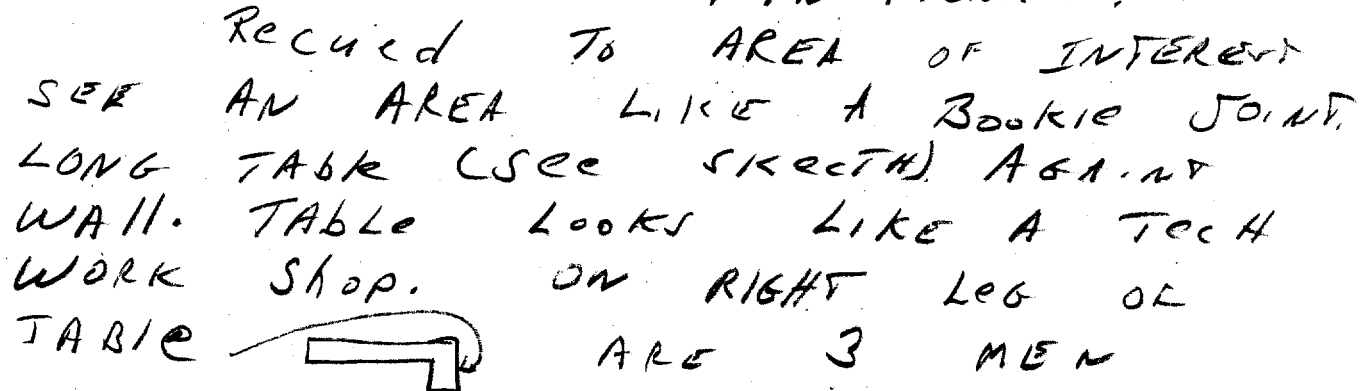 Recued To AREA OF INTEREST
SEE AN AREA LIKE A Bookie JOINT.
LONG TABLE (See SKecTH) AGAINT
WAll. TABLe LOOKS LIKE A TecH
WORK Shop. ON RIGHT LeG OF
TABle ARE 3 MEN